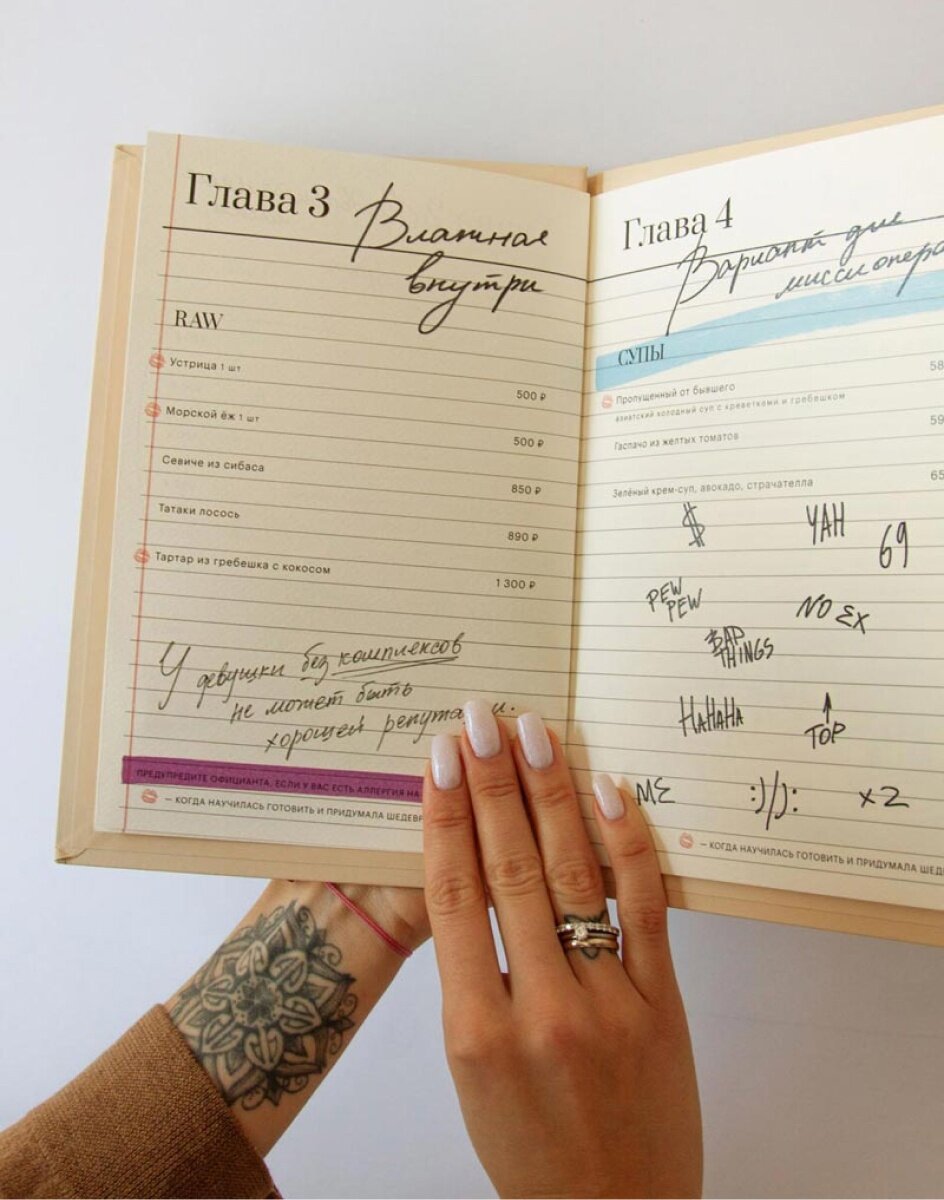 Глава 3
Влажная
внутри
RAW
Устрица 1 шт
500 ₽
Морской ёж 1 шт
500 ₽
Севиче из сибаса
850 ₽
Татаки лосось
890 ₽
Тартар из гребешка с кокосом
1 300 ₽
У девушки без комплексов
не может быть
хорошей
ПРЕДУПРЕДИТЕ ОФИЦИАНТА, ЕСЛИ У ВАС ЕСТЬ АЛЛЕРГИЯ НА
— КОГДА НАУЧИЛАСЬ ГОТОВИТЬ И ПРИДУМАЛА
Глава 4
Вариант для
СУПЫ
Пропущенный от бывшего
азиатский холодный суп с креветками и гребешком
Гаспачо из желтых томатов
Зелёный крем-суп, авокадо, страчателла
$
YAH
69
PEW
PEW
NO EX
BAD
THINGS
HAHAHA
TOP
ME
:)/):
x2
— КОГДА НАУЧИЛАСЬ ГОТОВИТЬ И ПРИДУМАЛА